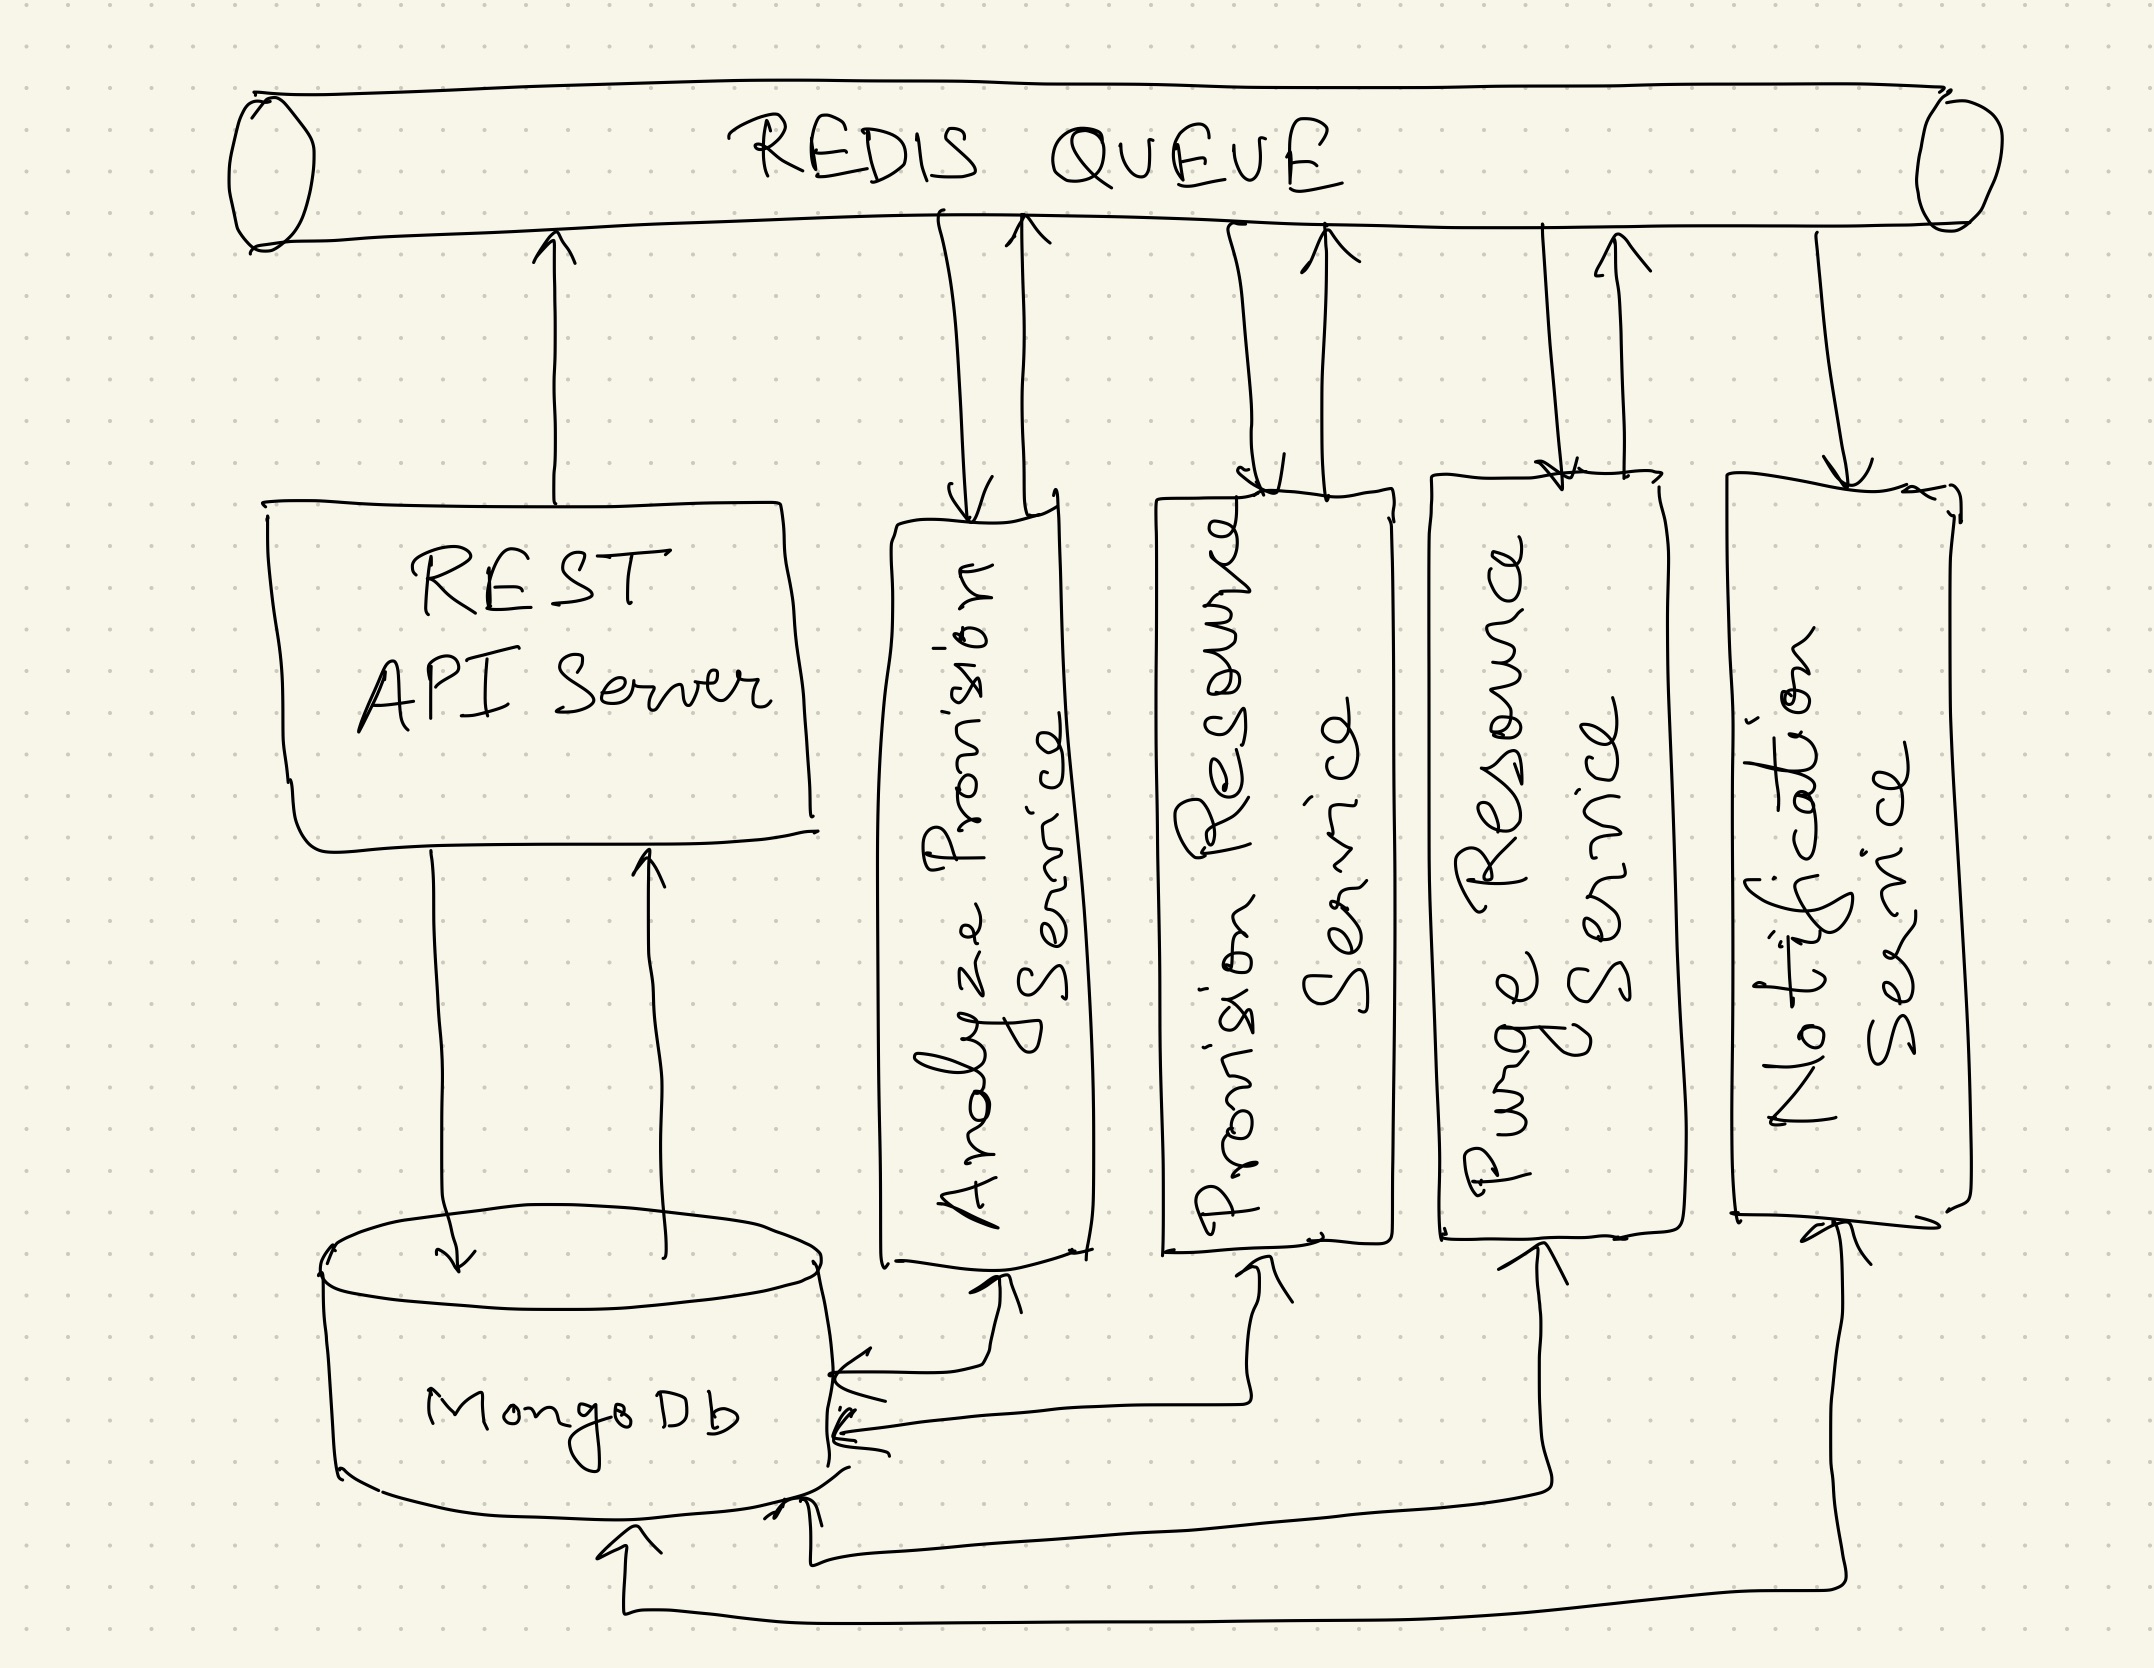 REDIS QUEUE
REST
API Server
Analyze Provision
Service
Provision Resource
Service
Purge Resource
Service
Notification
Service
MongoDb